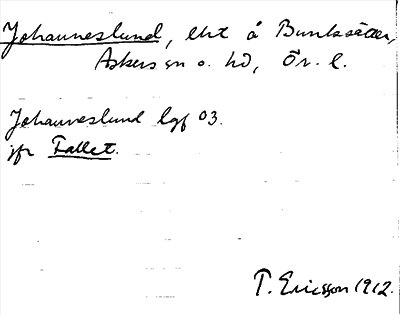 Johanneslund, lht å Bunksätter,
Askers sn o. hd, Ör. l.
Johanneslund lgf 03.
jfr Fallet.
T. Ericsson 1912.